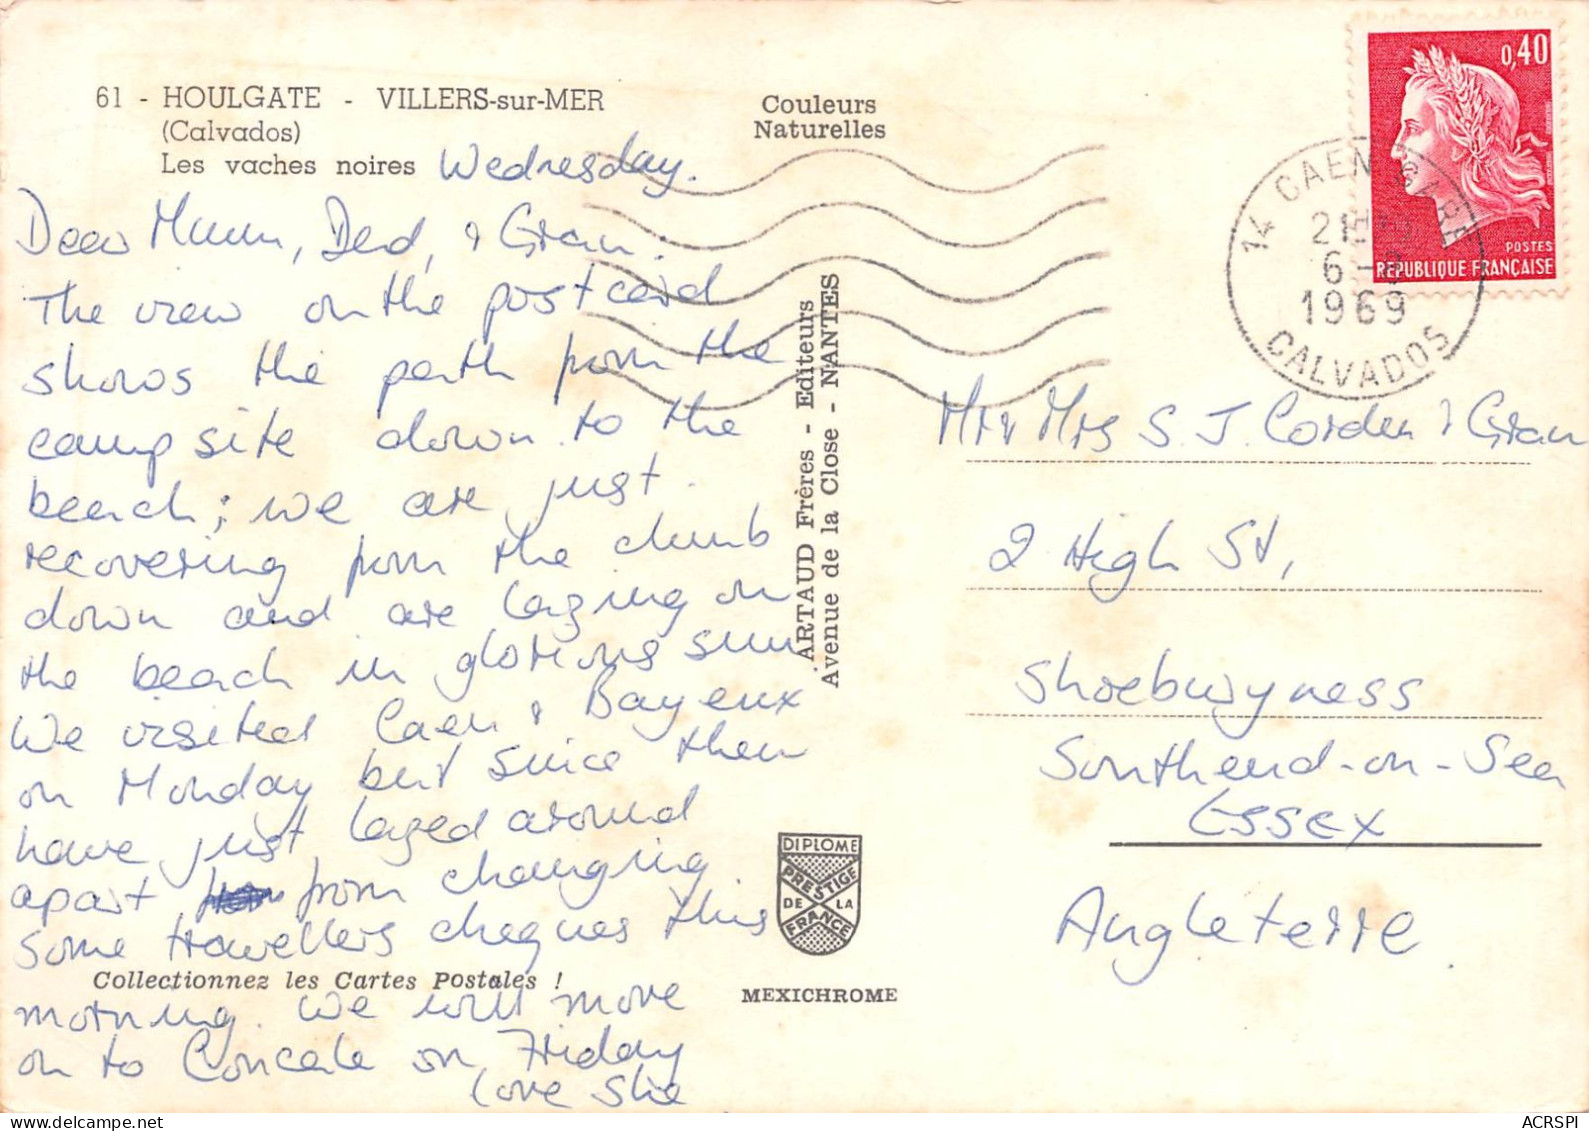 61 - HOULGATE - VILLERS-sur-MER
(Calvados)
Les vaches noires
Wednesday.
Dear Mum, Dad, & Gran.
The view on the postcard
shows the path from the
camp site down to the
beach; we are just
recovering from the climb
down and are lazing on
the beach in glorious sun
We visited Caen & Bayeux
on Monday but since then
have just lazed around
apart from changing
some travellers cheques this
morning. We will move
on to Concale on Friday
love
Couleurs
Naturelles
ARTAUD Frères - Editeurs
Avenue de la Close - NANTES
DIPLOME
PRESTIGE
DE LA
FRANCE
MEXICHROME
Collectionnez les Cartes Postales !
0,40
POSTES
REPUBLIQUE FRANÇAISE
14 CAEN GARE
21H
6 -
1969
CALVADOS
Mr & Mrs S. J. Corden & Gran
2 High St,
Shoebwyness
Southend-on-Sea
Essex
Angleterre
ACRSPI